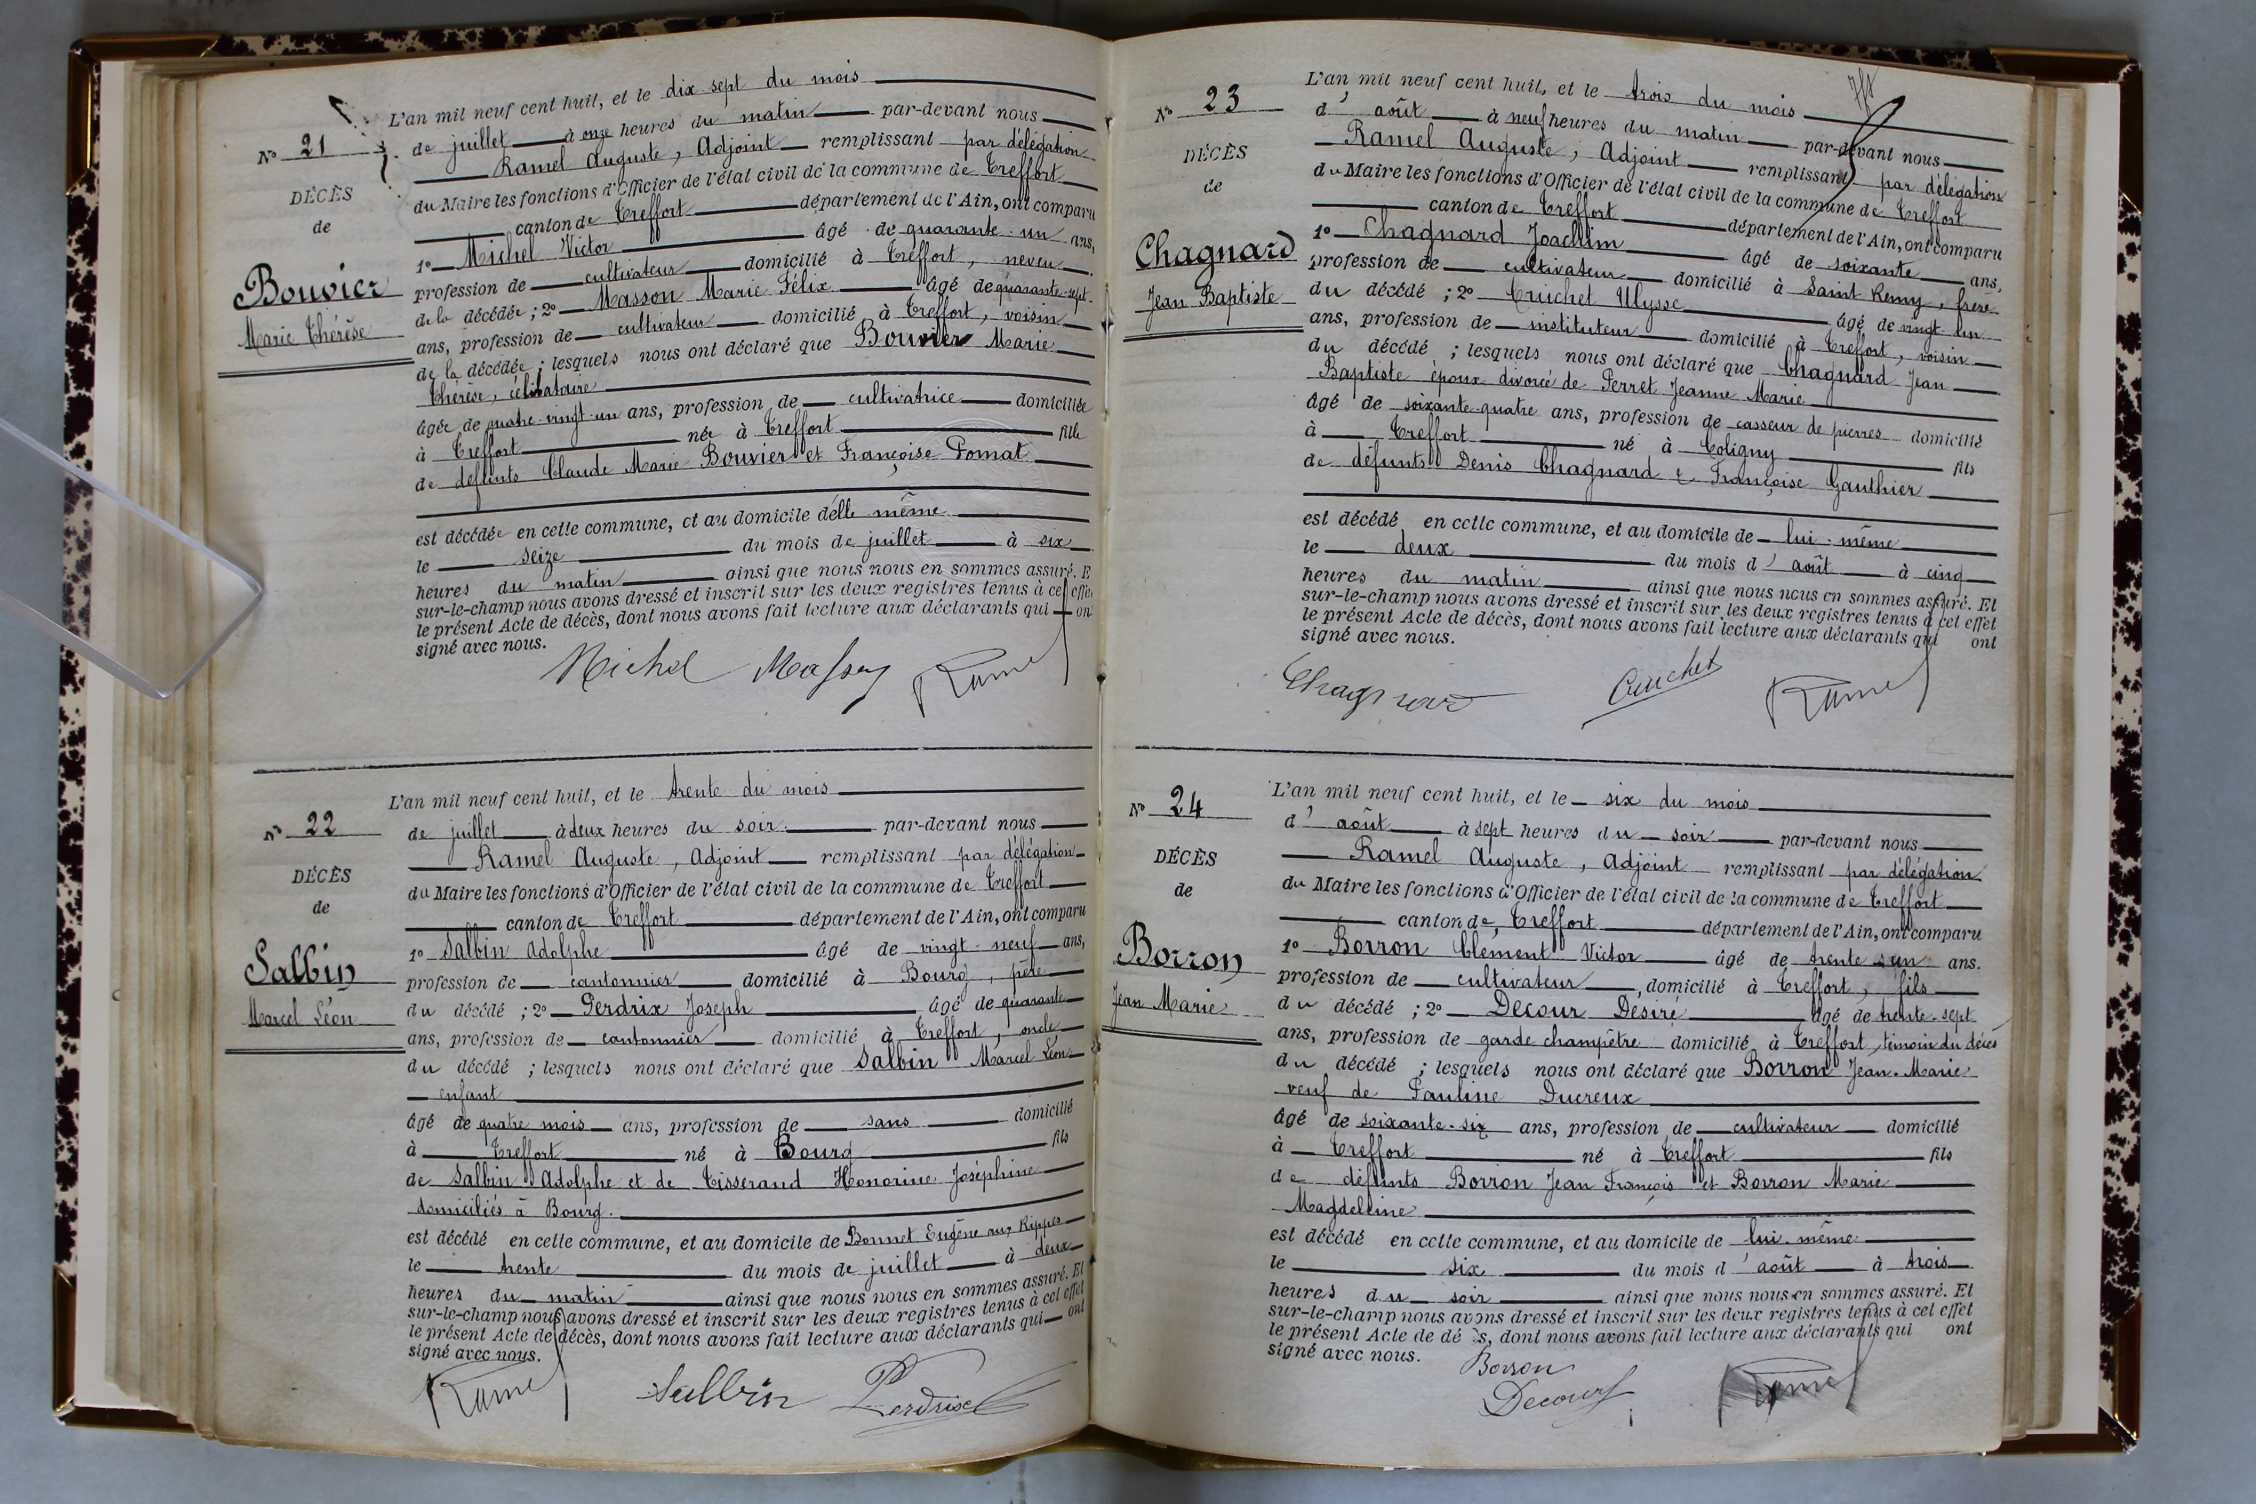 L'an mil neuf cent huit, et le dix sept du mois
No 21
de juillet à onze heures du matin par-devant nous
Ramel Auguste, Adjoint remplissant par délégation
DÉCÈS
du Maire les fonctions d'Officier de l'état civil de la commune de Treffort
de
canton de Treffort département de l'Ain, ont comparu
1o Michel Victor âgé de quarante-un ans,
Bouvier
profession de cultivateur domicilié à Treffort, neveu
Marie Thérèse
de la décédée ; 2o Masson Marie Félix âgé de quarante-sept
ans, profession de cultivateur domicilié à Treffort, voisin
de la décédée ; lesquels nous ont déclaré que Bouvier Marie
Thérèse, célibataire
âgée de quatre-vingt-un ans, profession de cultivatrice domiciliée
à Treffort née à Treffort fille
de défunts Claude Marie Bouvier et Françoise Pomat
est décédée en cette commune, et au domicile d'elle même
le seize du mois de juillet à six
heures du matin ainsi que nous nous en sommes assuré. E
sur-le-champ nous avons dressé et inscrit sur les deux registres tenus à cet effet
le présent Acte de décès, dont nous avons fait lecture aux déclarants qui on
signé avec nous.
Michel Masson Ramel
L'an mil neuf cent huit, et le trente du mois
No 22
de juillet à deux heures du soir par-devant nous
Ramel Auguste, Adjoint remplissant par délégation
DÉCÈS
du Maire les fonctions d'Officier de l'état civil de la commune de Treffort
de
canton de Treffort département de l'Ain, ont comparu
1o Salbin Adolphe âgé de vingt-neuf ans,
Salbin
profession de cantonnier domicilié à Bourg, père
Marcel Léon
du décédé ; 2o Perdrix Joseph âgé de quarante
ans, profession de cantonnier domicilié à Treffort, oncle
du décédé ; lesquels nous ont déclaré que Salbin Marcel Léon
enfant
âgé de quatre mois ans, profession de sans domicilié
à Treffort né à Bourg fils
de Salbin Adolphe et de Tisserand Honorine Joséphine
domiciliés à Bourg.
est décédé en cette commune, et au domicile de Bonnet Eugène aux Rippes
le trente du mois de juillet à deux
heures du matin ainsi que nous nous en sommes assuré. Et
sur-le-champ nous avons dressé et inscrit sur les deux registres tenus à cet effet
le présent Acte de décès, dont nous avons fait lecture aux déclarants qui ont
signé avec nous.
Ramel Salbin Perdrix
L'an mil neuf cent huit, et le trois du mois
No 23
d'août à neuf heures du matin par-devant nous
Ramel Auguste, Adjoint remplissant par délégation
DÉCÈS
du Maire les fonctions d'Officier de l'état civil de la commune de Treffort
de
canton de Treffort département de l'Ain, ont comparu
1o Chagnard Joachim âgé de soixante ans,
Chagnard
profession de cultivateur domicilié à Saint Remy, frère
Jean Baptiste
du décédé ; 2o Cruichet Ulysse âgé de vingt un
ans, profession de instituteur domicilié à Treffort, voisin
du décédé ; lesquels nous ont déclaré que Chagnard Jean
Baptiste époux divorcé de Perret Jeanne Marie
âgé de soixante-quatre ans, profession de casseur de pierres domicilié
à Treffort né à Coligny fils
de défunts Denis Chagnard & Françoise Gauthier
est décédé en cette commune, et au domicile de lui-même
le deux du mois d'août à cinq
heures du matin ainsi que nous nous en sommes assuré. Et
sur-le-champ nous avons dressé et inscrit sur les deux registres tenus à cet effet
le présent Acte de décès, dont nous avons fait lecture aux déclarants qui ont
signé avec nous.
Chagnard Ramel
L'an mil neuf cent huit, et le six du mois
No 24
d'août à sept heures du soir par-devant nous
Ramel Auguste, Adjoint remplissant par délégation
DÉCÈS
du Maire les fonctions d'Officier de l'état civil de la commune de Treffort
de
canton de Treffort département de l'Ain, ont comparu
1o Borron Clément Victor âgé de trente un ans.
Borron
profession de cultivateur, domicilié à Treffort, fils
Jean Marie
du décédé ; 2o Decour Désiré âgé de trente-sept
ans, profession de garde champêtre domicilié à Treffort, témoin du décès
du décédé ; lesquels nous ont déclaré que Borron Jean-Marie
veuf de Pauline Ducreux
âgé de soixante-six ans, profession de cultivateur domicilié
à Treffort né à Treffort fils
de défunts Borron Jean François et Borron Marie
Magdeleine
est décédé en cette commune, et au domicile de lui-même
le six du mois d'août à trois
heures du soir ainsi que nous nous en sommes assuré. Et
sur-le-champ nous avons dressé et inscrit sur les deux registres tenus à cet effet
le présent Acte de dé s, dont nous avons fait lecture aux déclarants qui ont
signé avec nous.
Borron
Decour Ramel